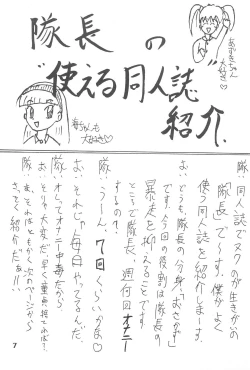 隊長の
"使える同人誌"
紹介
あずきちゃん
大好き♡
春ちゃんも
大好き♡
隊:同人誌でヌクのが生きがいの
「隊長」で〜す。僕がよく
使う同人誌を紹介しま〜す。
お:どうも、隊長の分身「おさかず」
です。今回の役割は隊長の、
暴走を抑えることです。
ところで隊長、週何回オナニー
するの?
隊:う〜ん、7回くらいかな♡
お:それじゃ毎日やってるんだ。
隊:オレってオナニー中毒だから
お:そりゃ大変だ!早く童貞捨てれば?
ま、それはともかく次のページから
さっそく紹介だぁ!!
7